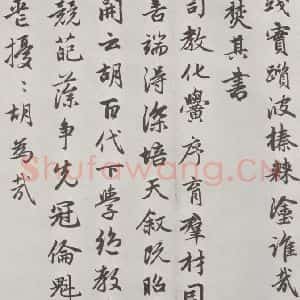 踐實躡彼榛棘塗誰哉
焚其書
司教化黌序育羣材因
善端得深培天叙既昭
開云胡百代下學絕教
競葩藻爭先冠倫魁
喪擾〻胡為哉
Shufawang.CN